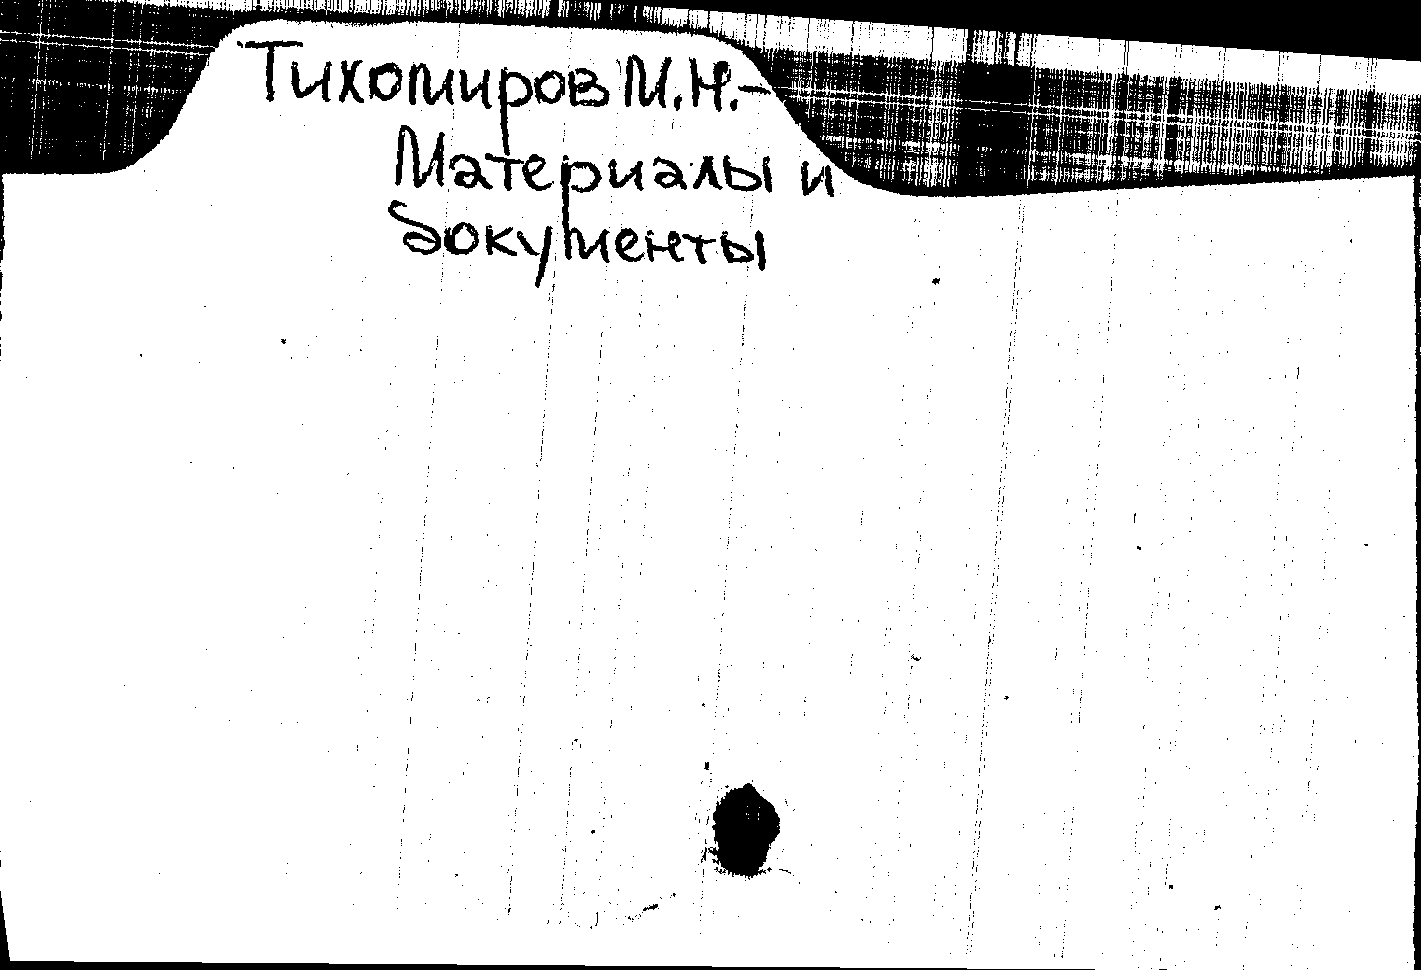 Тихомиров М.Н.-
Материалы и
документы